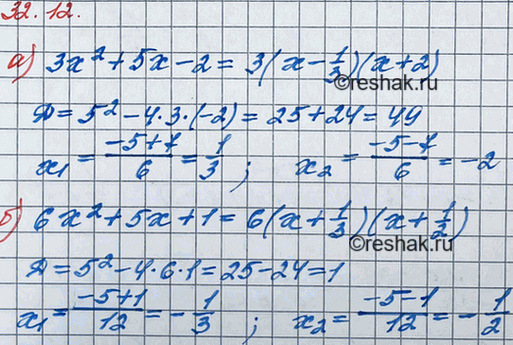 32.12.
а) 3x² + 5x - 2 = 3(x - 1/3)(x + 2)
Д = 5² - 4·3·(-2) = 25 + 24 = 49
x₁ = (-5+7)/6 = 1/3 ; x₂ = (-5-7)/6 = -2
б) 6x² + 5x + 1 = 6(x + 1/3)(x + 1/2)
Д = 5² - 4·6·1 = 25 - 24 = 1
x₁ = (-5+1)/12 = -1/3 ; x₂ = (-5-1)/12 = -1/2
©reshak.ru
©reshak.ru